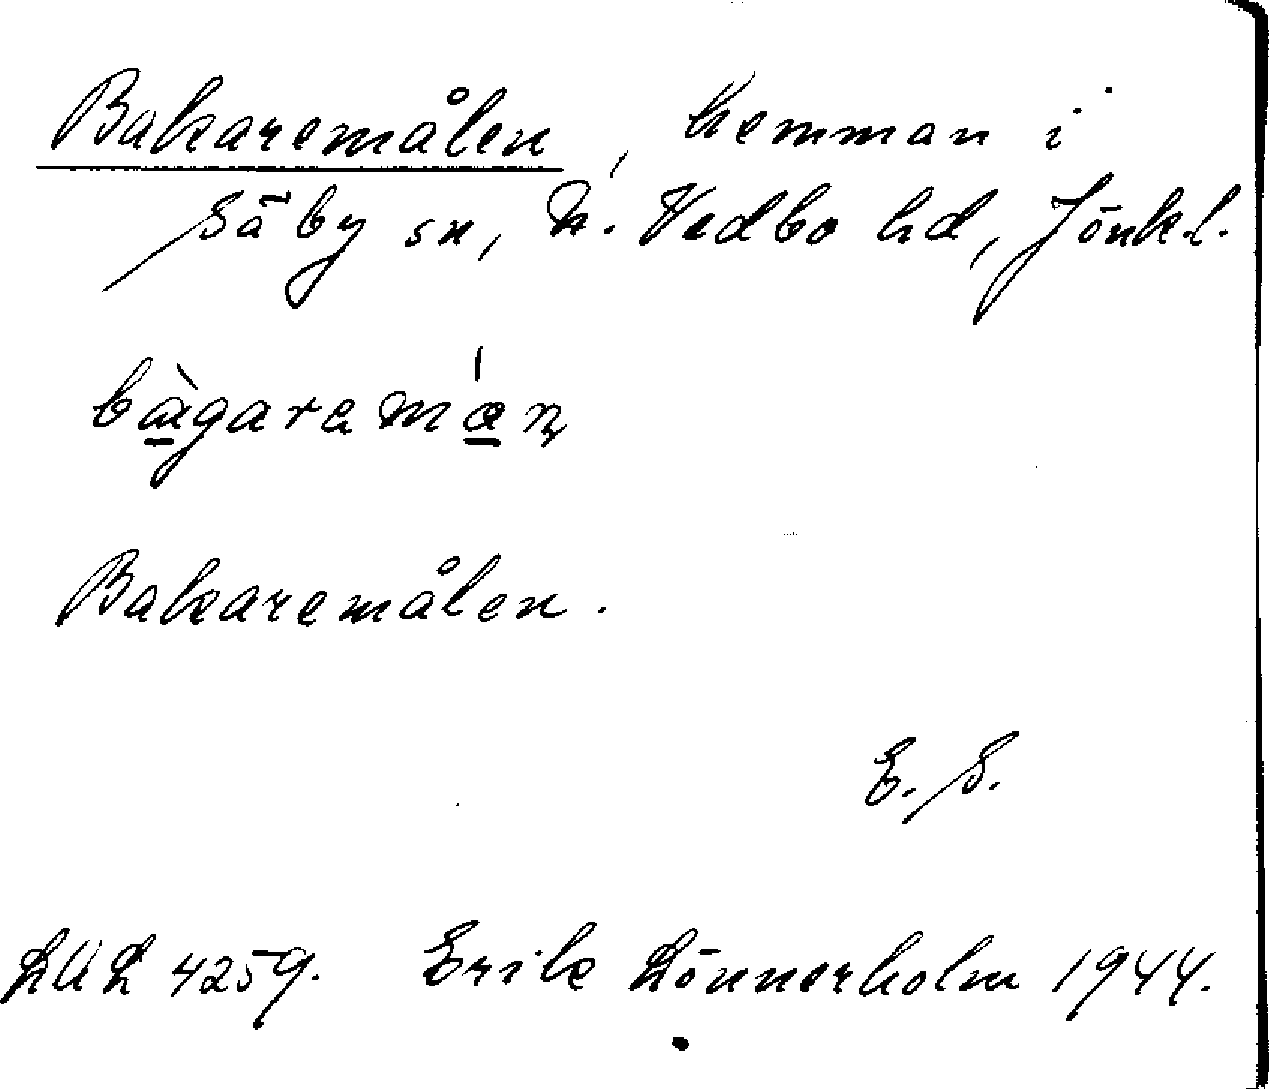 Bakaremålen, hemman i
Säby sn, N. Vedbo hd, Jönk.l.
bàgaremán
Bakaremålen.
E. S.
LUL 4259. Erik Lönnerholm 1944.